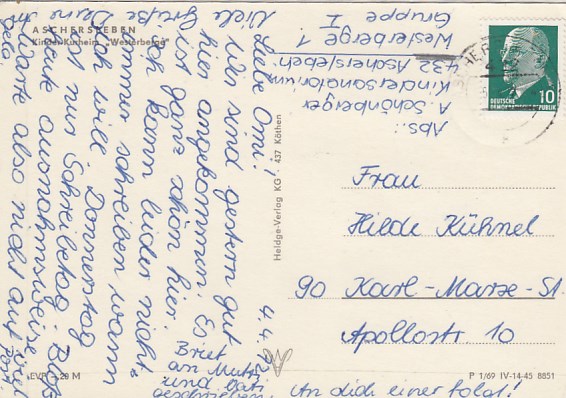 ASCHERSLEBEN
Kinder-Kurheim "Westerberge"
EVP -.20 M
Heldge-Verlag KG · 437 Köthen
P 1/69 IV-14-45 8851
DEUTSCHE
DEMOKRATISCHE REPUBLIK
10
Abs.:
A. Schönberger
Kindersanatorium
432 Aschersleben
Westerberge 1
Gruppe I
Frau
Hilde Kühnel
90 Karl-Marx-St.
Apollostr. 10
An dich einer folgt!
Liebe Omi!
Wir sind gestern gut
hier angekommen. Es
ist ganz schön hier.
Ich kann leider nicht
immer schreiben wann
ich will. Donnerstag
ist nur Schreibetag. Bloß
heute ausnahmsweise.
Warte also nicht auf viel
Post.
Viele
Grüße Deine
Brief
an Mutti
und Vati
geschrieben.